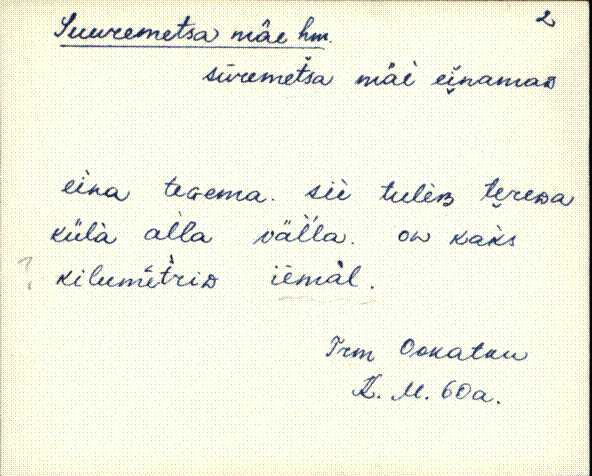 2
Suuremetsa mäe hm.
sūremetsa mäe einamaᴅ
eina tegema. siᴉ tuleʙ tereᴅa
külä alla välla. on kaks
? kilumētriᴅ iemäl.
Trm Ookatku
K. M. 60a.